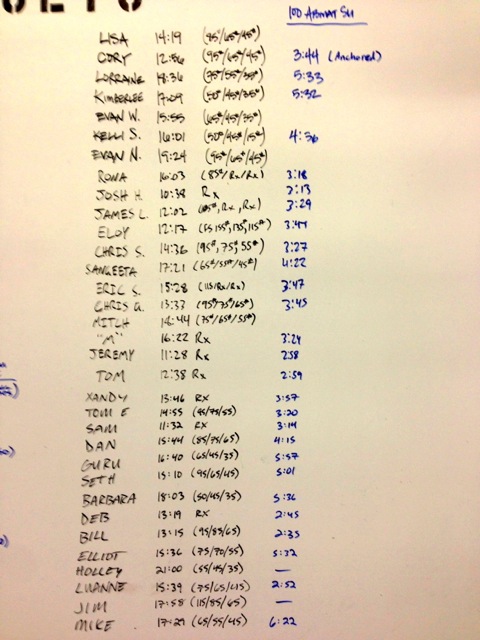 100 ABMAT SU
LISA 14:19 (95#/65#/45#)
CORY 12:56 (95#/65#/45#) 3:44 (Anchored)
LORRAINE 18:36 (75#/55#/35#) 5:33
KIMBERLEE 17:09 (50#/45#/35#) 5:32
EVAN W. 15:55 (65#/45#/35#)
KELLI S. 16:01 (50#/45#/15#) 4:36
EVAN N. 19:24 (95#/65#/45#)
RONA 16:03 (85#/Rx/Rx) 3:18
JOSH H. 10:38 Rx 3:13
JAMES L. 12:02 (85#, Rx, Rx) 3:29
ELOY 12:17 (FS 155#, 135#, 115#) 3:44
CHRIS S. 14:36 (95#, 75#, 55#) 3:27
SANGEETA 17:21 (65#/55#/45#) 4:22
ERIC S. 15:28 (115/Rx/Rx) 3:47
CHRIS G. 13:33 (95#/75#/65#) 3:45
MITCH 18:44 (75#/65#/55#)
"M" 16:22 Rx 3:24
JEREMY 11:28 Rx 2:58
TOM 12:38 Rx 2:59
XANDY 13:46 RX 3:57
TOM E 14:55 (95/75/55) 3:20
SAM 11:32 RX 3:14
DAN 15:44 (85/75/65) 4:15
GURU 16:40 (65/45/35) 5:57
SETH 15:10 (95/65/45) 5:01
BARBARA 18:03 (50/45/35) 5:36
DEB 13:19 RX 2:45
BILL 13:15 (95/85/65) 2:35
ELLIOT 15:36 (75/70/55) 5:22
HOLLEY 21:00 (55/45/35) —
LUANNE 15:39 (75/65/45) 2:52
JIM 17:58 (115/85/65) —
MIKE 17:29 (65/55/45) 6:22